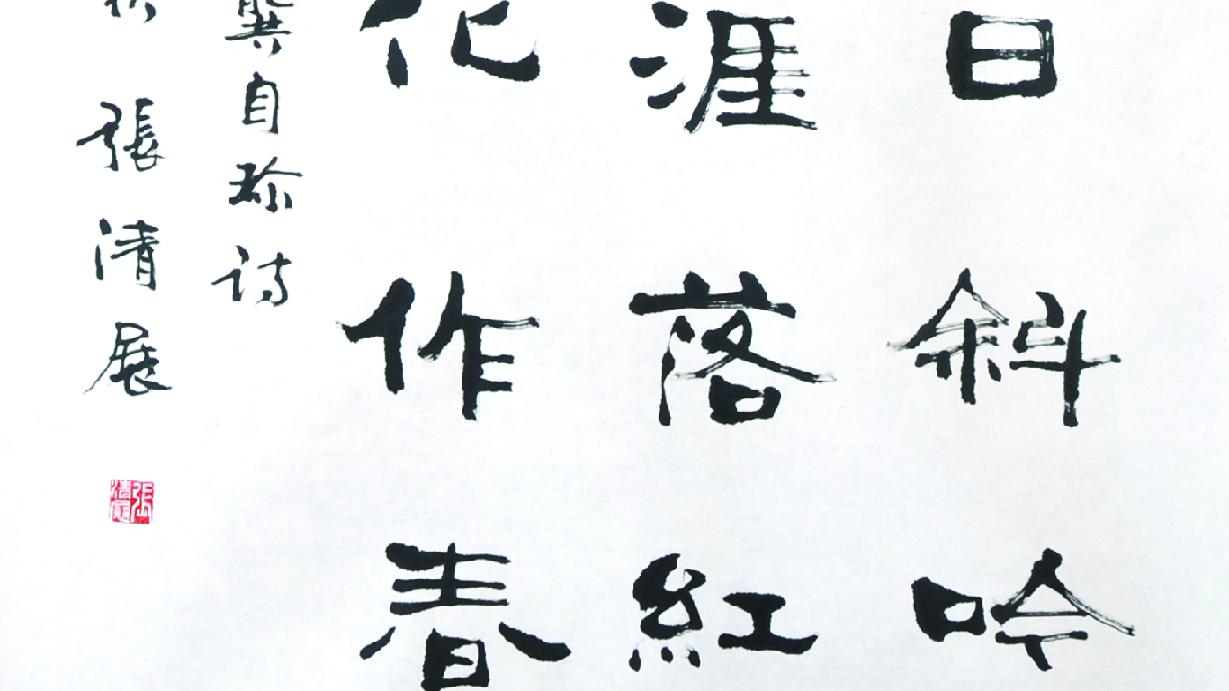 日斜吟
涯落红
化作春
龔自珍诗
張清展
張清展